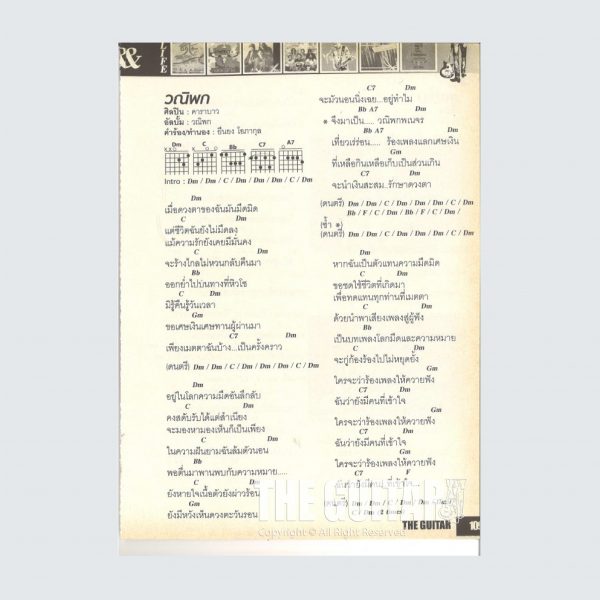 &
LIFE
วณิพก
ศิลปิน : คาราบาว
อัลบั้ม : วณิพก
คำร้อง/ทำนอง : ยืนยง โอภากุล
Dm C Bb C7 A7
Intro : Dm / Dm / C / Dm / Dm / Dm / C / Dm
Dm
เมื่อดวงตาของฉันมันมืดมิด
C Dm
แต่ชีวิตฉันยังไม่มืดลง
แม้ความรักยังเคยมีมั่นคง
C Dm
จะร้างไกลไม่หวนกลับคืนมา
Bb
ออกย่ำไปบนทางที่หิวโซ
C Dm
มิรู้คืนรู้วันเวลา
Gm
ขอเศษเงินเศษทานผู้ผ่านมา
C7 Dm
เพียงเมตตาฉันบ้าง...เป็นครั้งคราว
(ดนตรี) Dm / Dm / C / Dm / Dm / Dm / C / Dm
Dm
อยู่ในโลกความมืดอันลึกลับ
C Dm
คงสดับรับได้แต่สำเนียง
จะมองหามองเห็นก็เป็นเพียง
C Dm
ในความฝันยามฉันล้มตัวนอน
Bb
พอตื่นมาพานพบกับความหมาย.....
C Dm
ยังหายใจเนื้อตัวยังผ่าวร้อน
Gm
ยังมีหวังเห็นดวงตะวันรอน
C7 Dm
จะมัวนอนนิ่งเฉย...อยู่ทำไม
Bb A7 Dm
* จึงมาเป็น..... วณิพกพเนจร
Bb A7 Dm
เที่ยวเร่ร่อน..... ร้องเพลงแลกเศษเงิน
Gm
ที่เหลือกินเหลือเก็บเป็นส่วนเกิน
C7 Dm
จะนำเงินสะสม...รักษาดวงตา
(ดนตรี) Dm / Dm / C / Dm / Dm / Dm / C / Dm /
Bb / F / C / Dm / Bb / F / C / Dm /
(ซ้ำ *)
(ดนตรี) Dm / Dm / C / Dm / Dm / Dm / C / Dm
Dm
หากฉันเป็นตัวแทนความมืดมิด
C Dm
ขอชดใช้ชีวิตที่เกิดมา
เพื่อทดแทนทุกท่านที่เมตตา
C Dm
ด้วยนำพาเสียงเพลงสู่ผู้ฟัง
Bb
เป็นบทเพลงโลกมืดและความหมาย
C Dm
จะกู่ก้องร้องไปไม่หยุดยั้ง
Gm
ใครจะว่าร้องเพลงให้ควายฟัง
C7 Dm
ฉันว่ายังมีคนที่เข้าใจ
Gm
ใครจะว่าร้องเพลงให้ควายฟัง
C7 Dm
ฉันว่ายังมีคนที่เข้าใจ
Gm
ใครจะว่าร้องเพลงให้ควายฟัง
C7 F
THE GUITAR
Copyright © All Right Reserved
THE GUITAR